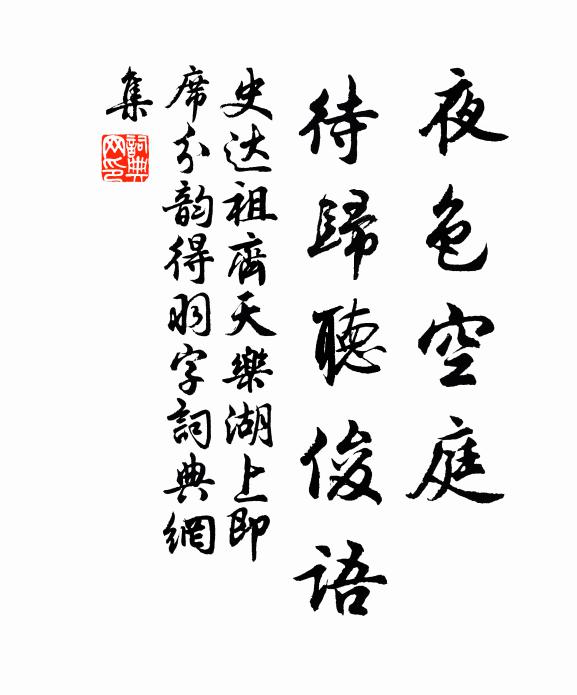 夜色空庭
待歸聽俊語
史达祖齊天樂湖上即
席分韵得羽字詞典網
集
詞典
网印